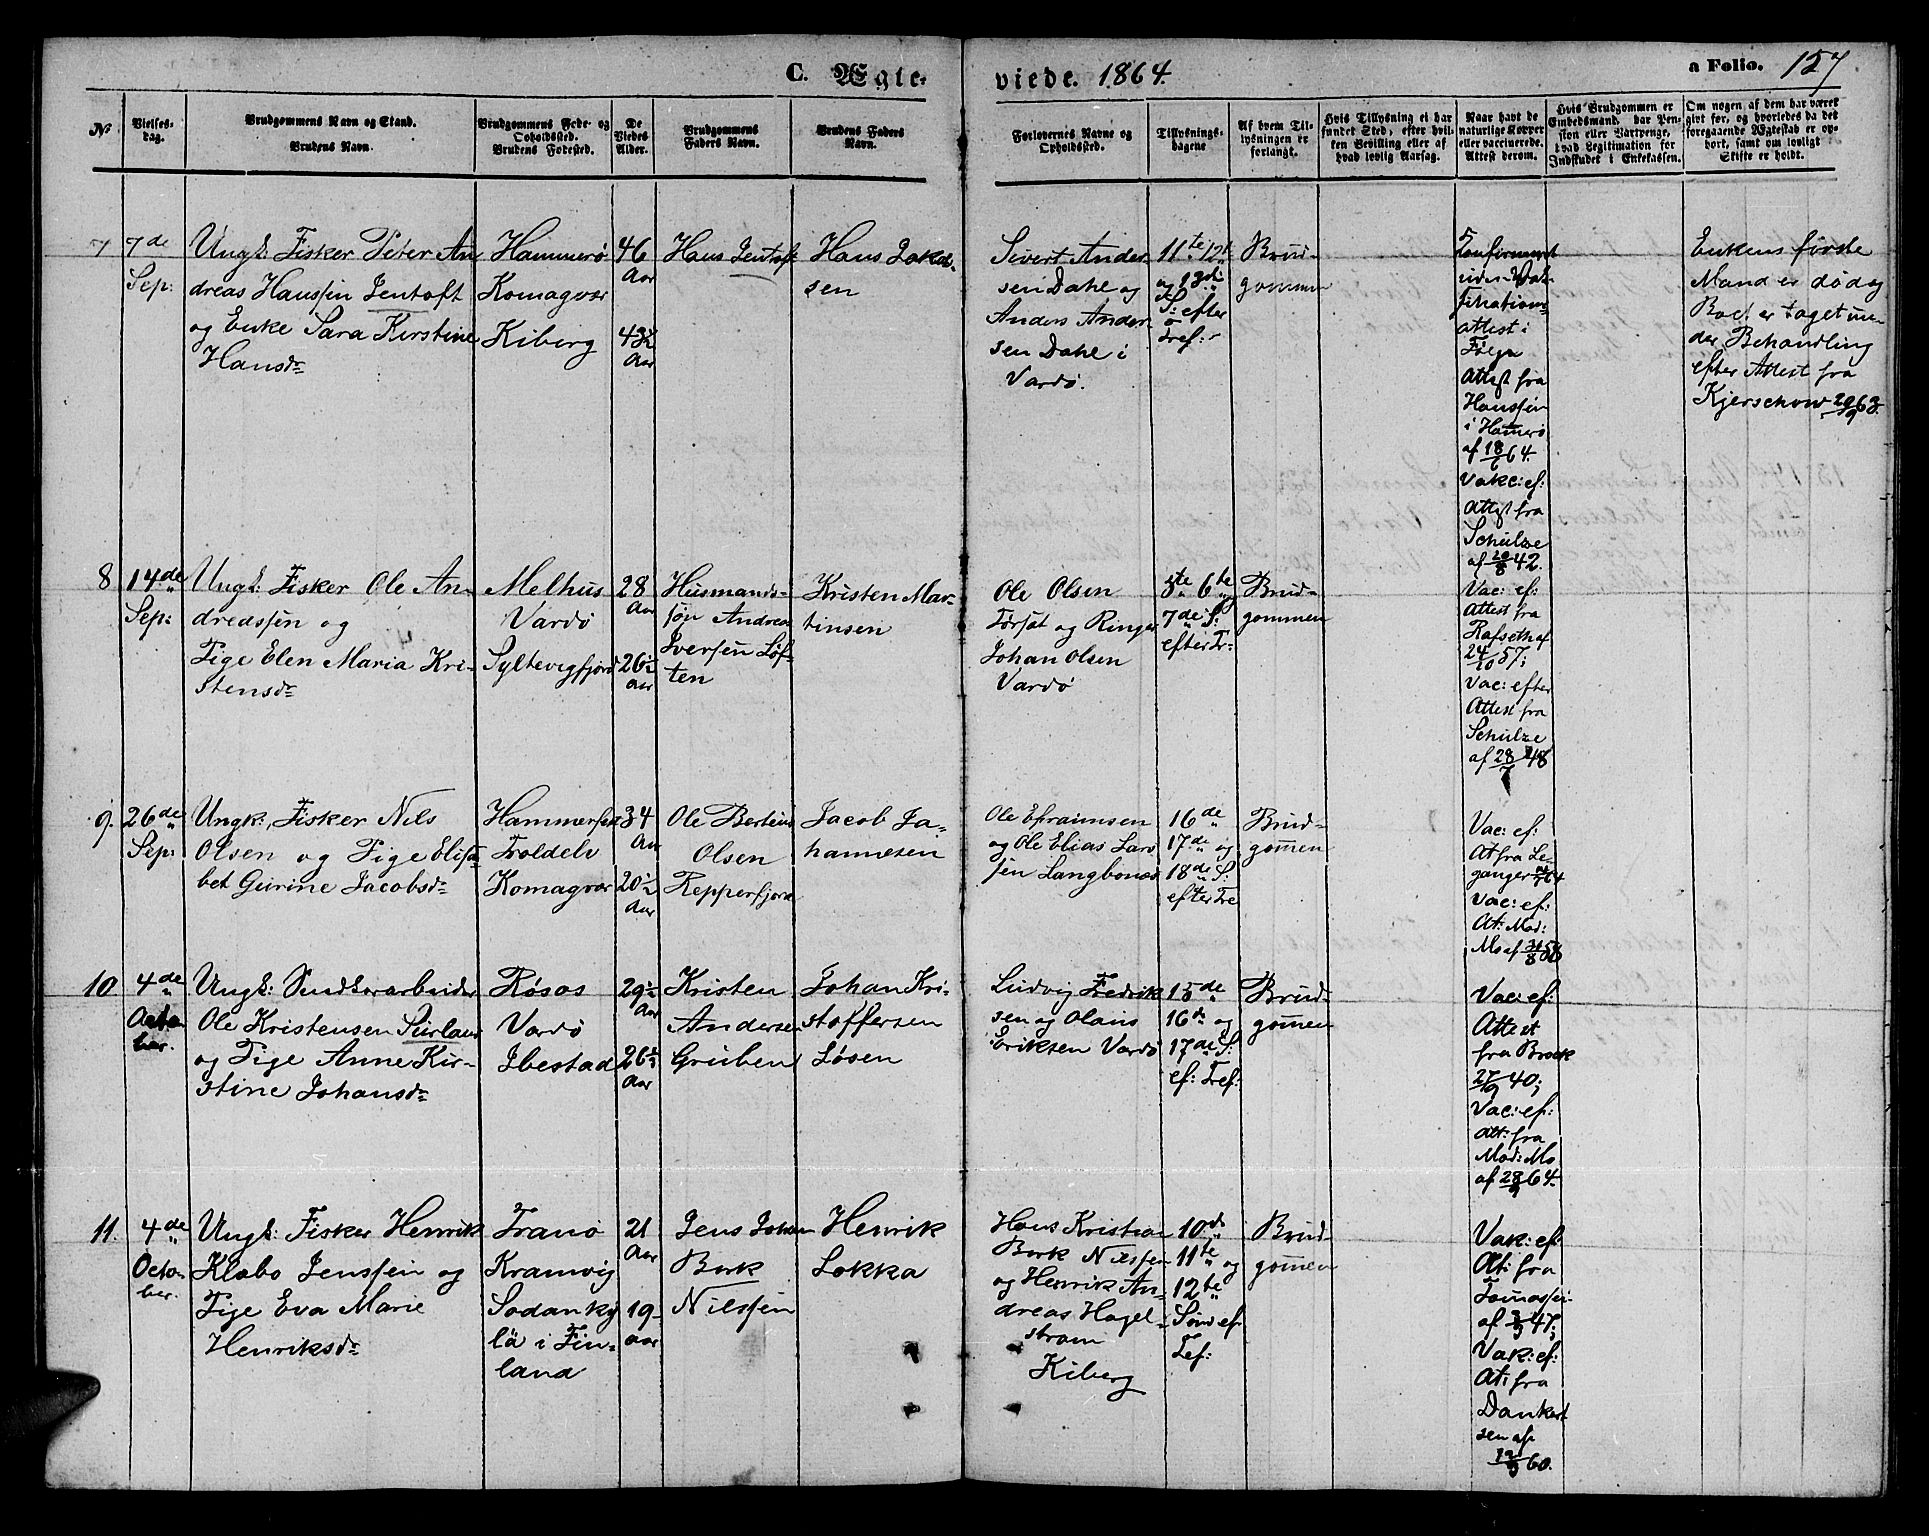 C. Ægte-
viede. 1864.
a Folio. 157
No
Vielses-
dag.
Brudgommens Navn og Stand.
Brudens Navn.
Brudgommens Føde- og
Opholdssted.
Brudens Fødested.
De
Viedes
Alder.
Brudgommens
Faders Navn.
Brudens Faders
Navn.
Forlovernes Navne og
Opholdssted.
Tillysnings-
dagene
Af hvem Til-
lysningen er
forlangt.
Hvis Tillysning ei har
fundet Sted, efter hvil-
ken Bevilling eller af
hvad lovlig Aarsag.
Naar havt de
naturlige Kopper
eller vaccinerede.
Attest derom.
Hvis Brudgommen er
Embedsmand, har Pen-
sion eller Vartpenge,
hvad Legitimation for
Indskudet i Enkekassen.
Om nogen af dem har været
gift før, og hvorledes da det
foregaaende Ægteskab er op-
hørt, samt om lovligt
Skifte er holdt.
7
7de
Sep:
Ungk: Fisker Peter An
dreas Hanssen Jentoft
og Enke Sara Kirstine
Hansdr
Hammerø
Komagvær
Kiberg
46
Aar
43½
Aar
Hans Jentoft
Hans Jakob-
sen
Sivert Ander-
sen Dahl og
Anders Ander-
sen Dahl i
Vardø.
11te 12te
og 13de
S: efter
Tref:
Brud-
gommen
Konfirmeret
attest i
Følge
Attest fra
Hanssen
i Hamerø
af 18/6 64.
Vakc: ef:
Attest fra
Schulze
af 20/8 42.
Enkens første
Mand er død og
Boet er taget un-
der Behandling
efter Attest fra
Kjerschow 29/9 63.
8
14de
Sep:
Ungk: Fisker Ole An-
dreassen og
Pige Elen Maria Kri-
stensdr
Melhus
Vardø
Syltevigfjord
28
Aar
26½
Aar
Husmands-
søn Andreas
Iversen Løf-
ten
Kristen Mar-
tinsen
Ole Olsen
Forsat og Ringer
Johan Olsen
Vardø
5te 6te
7de S:
efter Tr:
Brud-
gommen
Vac: ef:
Attest fra
Rafseth af
24/10 57;
Vac: efter
Attest fra
Schulze
af 28/7 48
9.
26de
Sep:
Ungk: Fisker Nils
Olsen og Pige Elisa-
bet Gurine Jacobsdr
Hammerfest
Troldelv
Komagvær
34
Aar
20½
Aar
Ole Bertius
Olsen
Repperfjord
Jacob Jo-
hannesen
Ole Efraimsen
og Ole Elias Lars
sen Langbones
16de
17de og
18de S:
efter Tre
Brud-
gomen
Vac: ef:
At fra Le-
ganger
Vac: ef:
At: Mad:
Mo af 31/8 58
10
4de
Octo
ber.
Ungk: Smedkorarbeider
Ole Kristensen Surlaus
og Pige Anne Kir-
stine Johansdr
Røsos
Vardø
Ibestad
29½
Aar
26½
Aar
Kristen
Andersen
Gruben
Johan Kri-
stoffersen
Løsen
Ludvig Fredrik
sen og Olaus
Eriksen Vardø
15de
16de og
17de S:
ef: Tref:
Brud-
gomen
Vac: ef:
Attest
fra Brock
27/9 40;
Vac: ef:
Att: fra
Mad: Mo
af 28/9 64.
11.
4de
Octo-
ber.
Ungk: Fisker Henrik
Klæbo Jenssen og
Pige Eva Marie
Henriksdr
Tranø
Kramvig
Sodanky
lä i Fin-
land
21
Aar
19
aar
Jens Johan
Bork
Nilssen
Henrik
Lokka
Hans Kristian
Bork Nilssen
og Henrik An-
dreas Hagel-
strøm
Kiberg
10de
11te og
12te
Sønd ef
Tref:
Brud-
gomen
Vak: ef:
At: fra
Tomassen
af 3/9 47;
Vak: ef:
At: fra
Dankert
sen af
12/9 60.